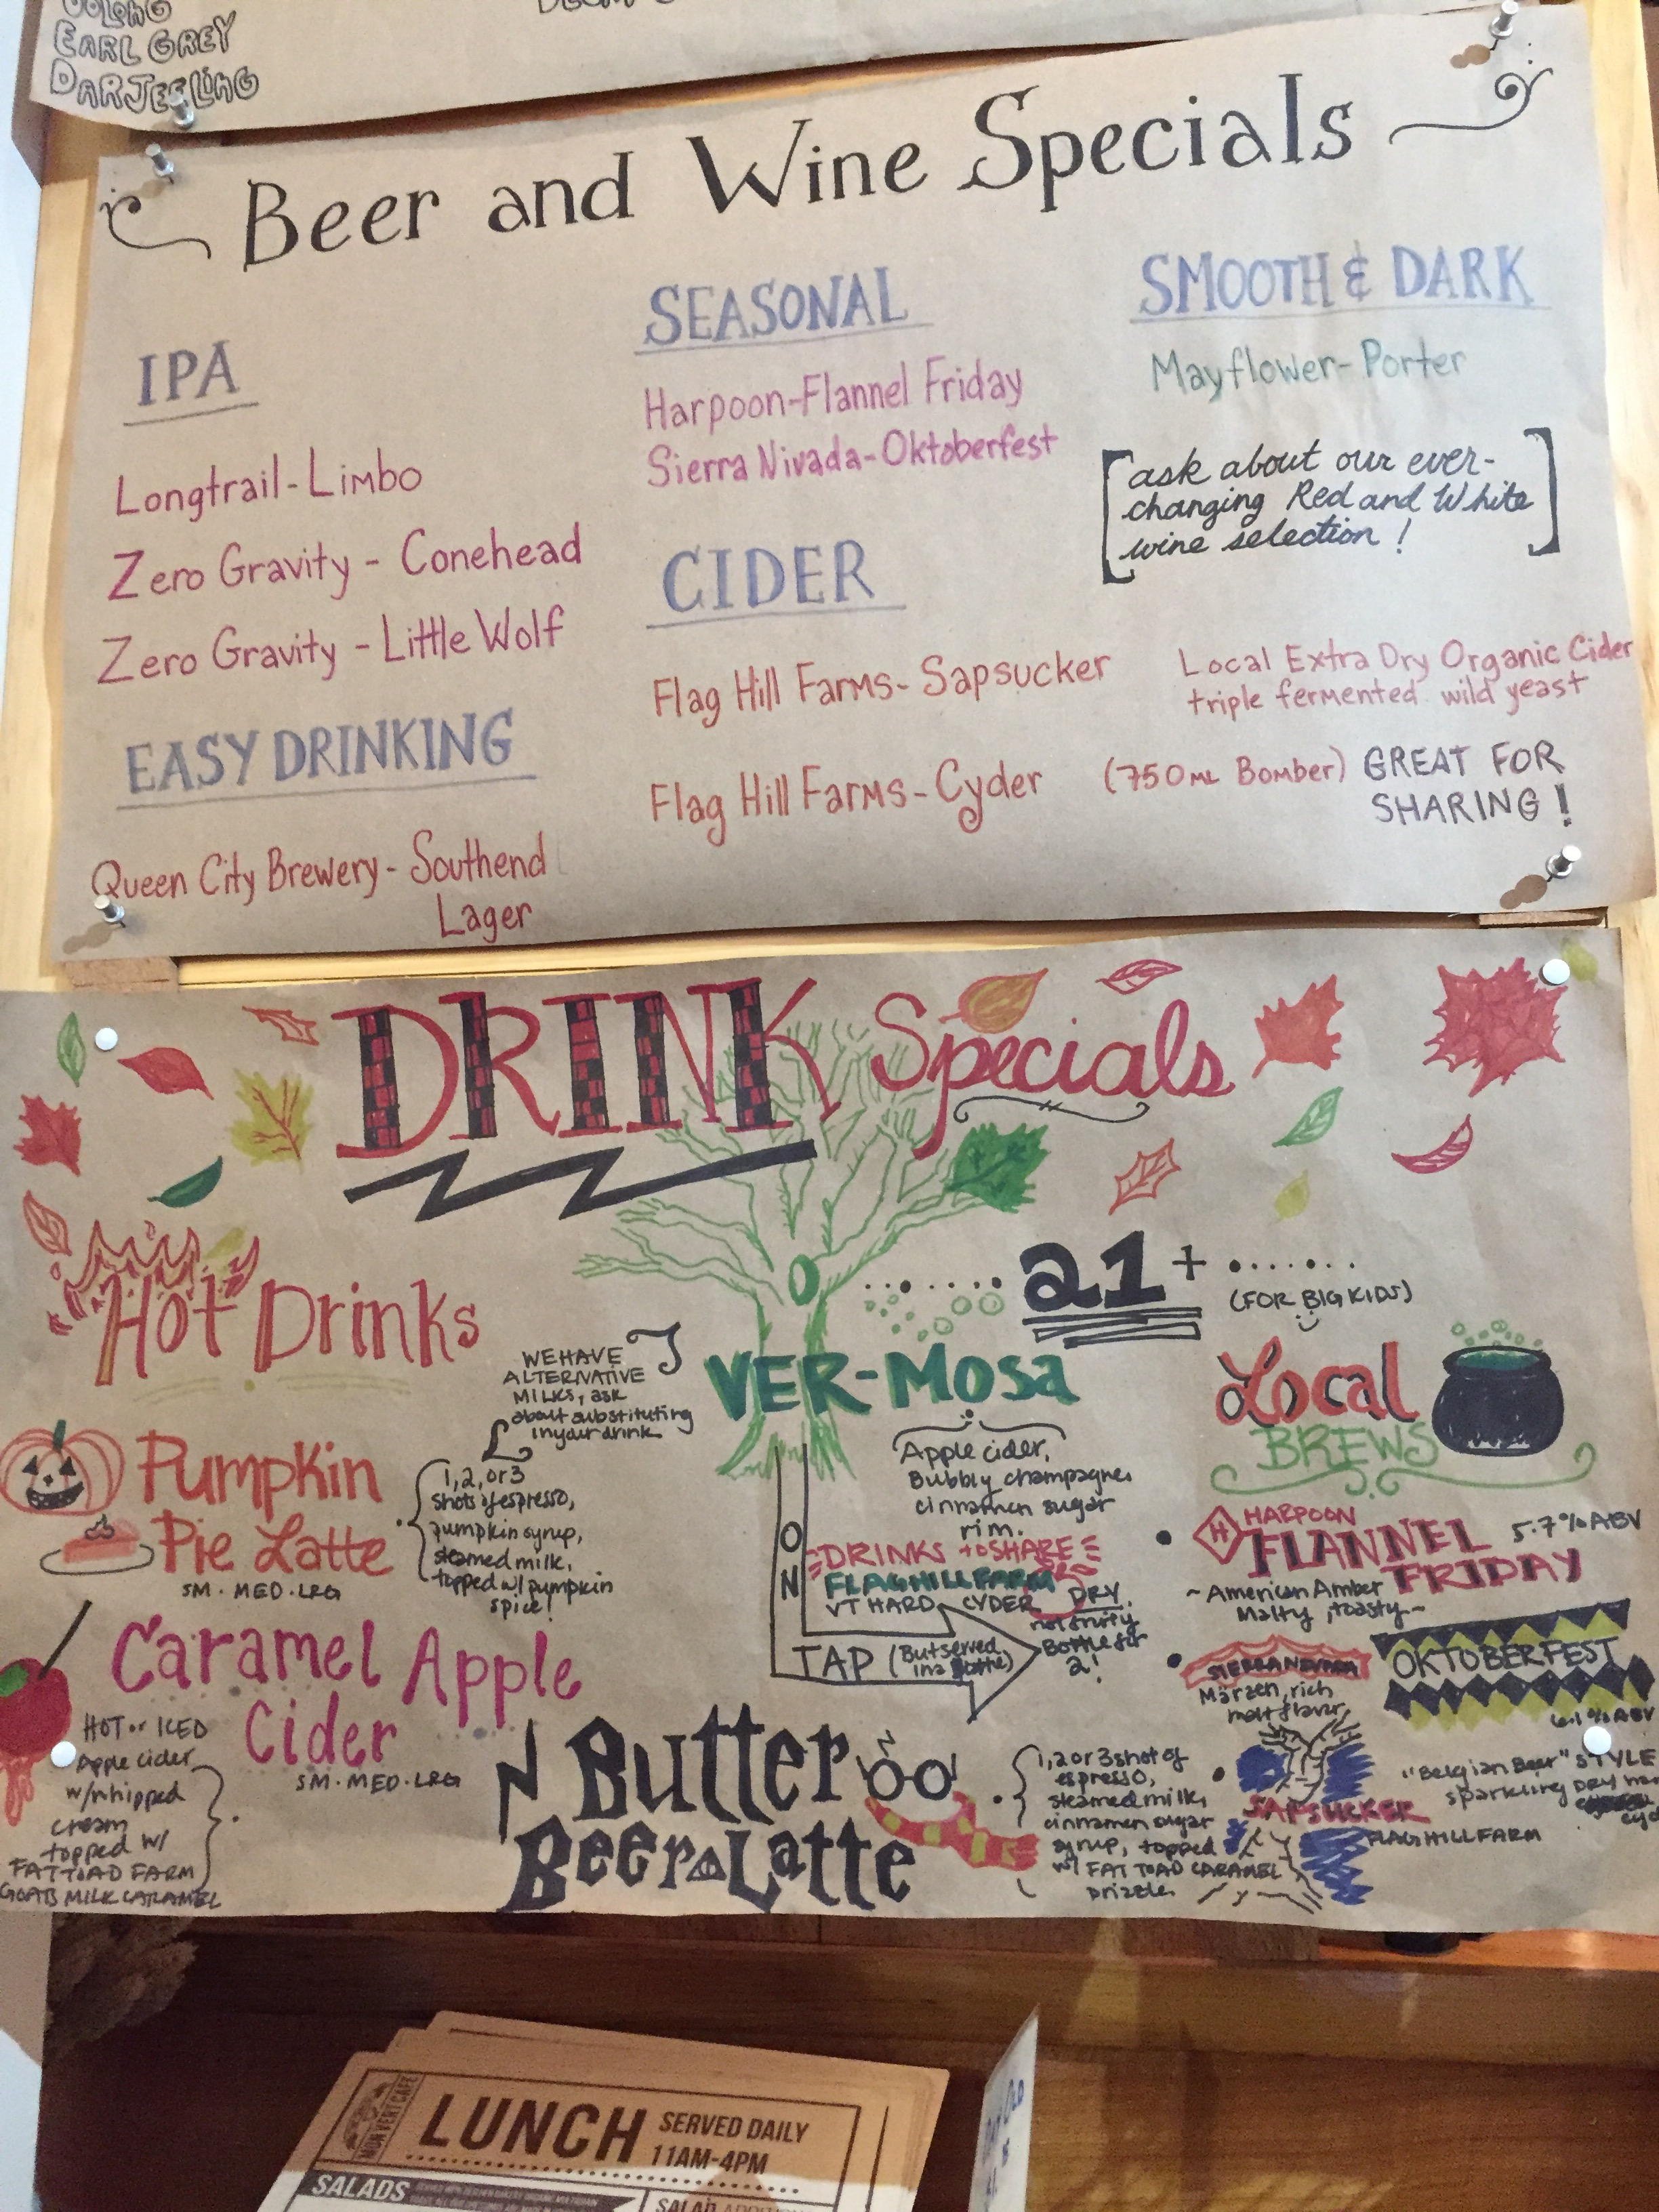 OOLONG
EARL GREY
DARJEELING
Beer and Wine Specials
IPA
Longtrail-Limbo
Zero Gravity - Conehead
Zero Gravity - Little Wolf
EASY DRINKING
Queen City Brewery - Southend
Lager
SEASONAL
Harpoon-Flannel Friday
Sierra Nivada-Oktoberfest
CIDER
Flag Hill Farms- Sapsucker
Local Extra Dry Organic Cider
triple fermented wild yeast
Flag Hill Farms-Cyder (750ML Bomber) GREAT FOR
SHARING!
SMOOTH & DARK
Mayflower-Porter
[ask about our ever-
changing Red and White
wine selection!]
DRINK Specials
Hot Drinks
WE HAVE
ALTERNATIVE
MILKS, ask
about substituting
in your drink
Pumpkin
Pie Latte
SM. MED. LRG
1, 2, or 3
shots of espresso,
pumpkin syrup,
steamed milk,
topped w/ pumpkin
spice!
Caramel Apple
Cider
SM. MED. LRG
HOT or ICED
Apple cider
w/whipped
cream
topped w/
FAT TOAD FARM
GOATS MILK CARAMEL
21+
(FOR BIG KIDS)
VER-MOSA
Apple cider,
Bubbly champagne,
cinnamon sugar
rim.
ON
TAP (But served
in a bottle)
DRINKS to SHARE
FLAG HILL FARM
VT HARD CYDER DRY,
not fruity
Bottle for
2!
Butter
Beer Latte
1, 2 or 3 shot of
espresso,
steamed milk,
cinnamon sugar
syrup, topped
w/ FAT TOAD CARAMEL
Drizzle
Local
BREWS
H HARPOON
FLANNEL 5.7% ABV
FRIDAY
~American Amber
Malty, toasty~
SIERRA NEVADA OKTOBERFEST
Märzen, rich
malt flavor,
6.1% ABV
SAPSUCKER
FLAG HILL FARM
"Belgian Beer" STYLE
sparkling DRY
MON VERT CAFE
LUNCH SERVED DAILY
11AM-4PM
SALADS